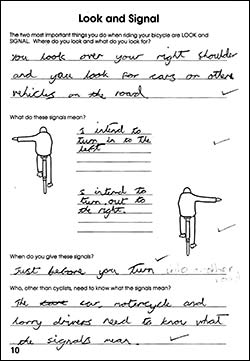 Look and Signal
The two most important things you do when riding your bicycle are LOOK and
SIGNAL. Where do you look and what do you look for?
You look over your right shoulder
and you look for cars or others
vehicles on the road
What do these signals mean?
I intend to
turn in to the
left
I intend to
turn out to
the right.
When do you give these signals?
Just before you turn
Who, other than cyclists, need to know what the signals mean?
The car, motorcycle and
lorry drivers need to know what
the signals mean.
10